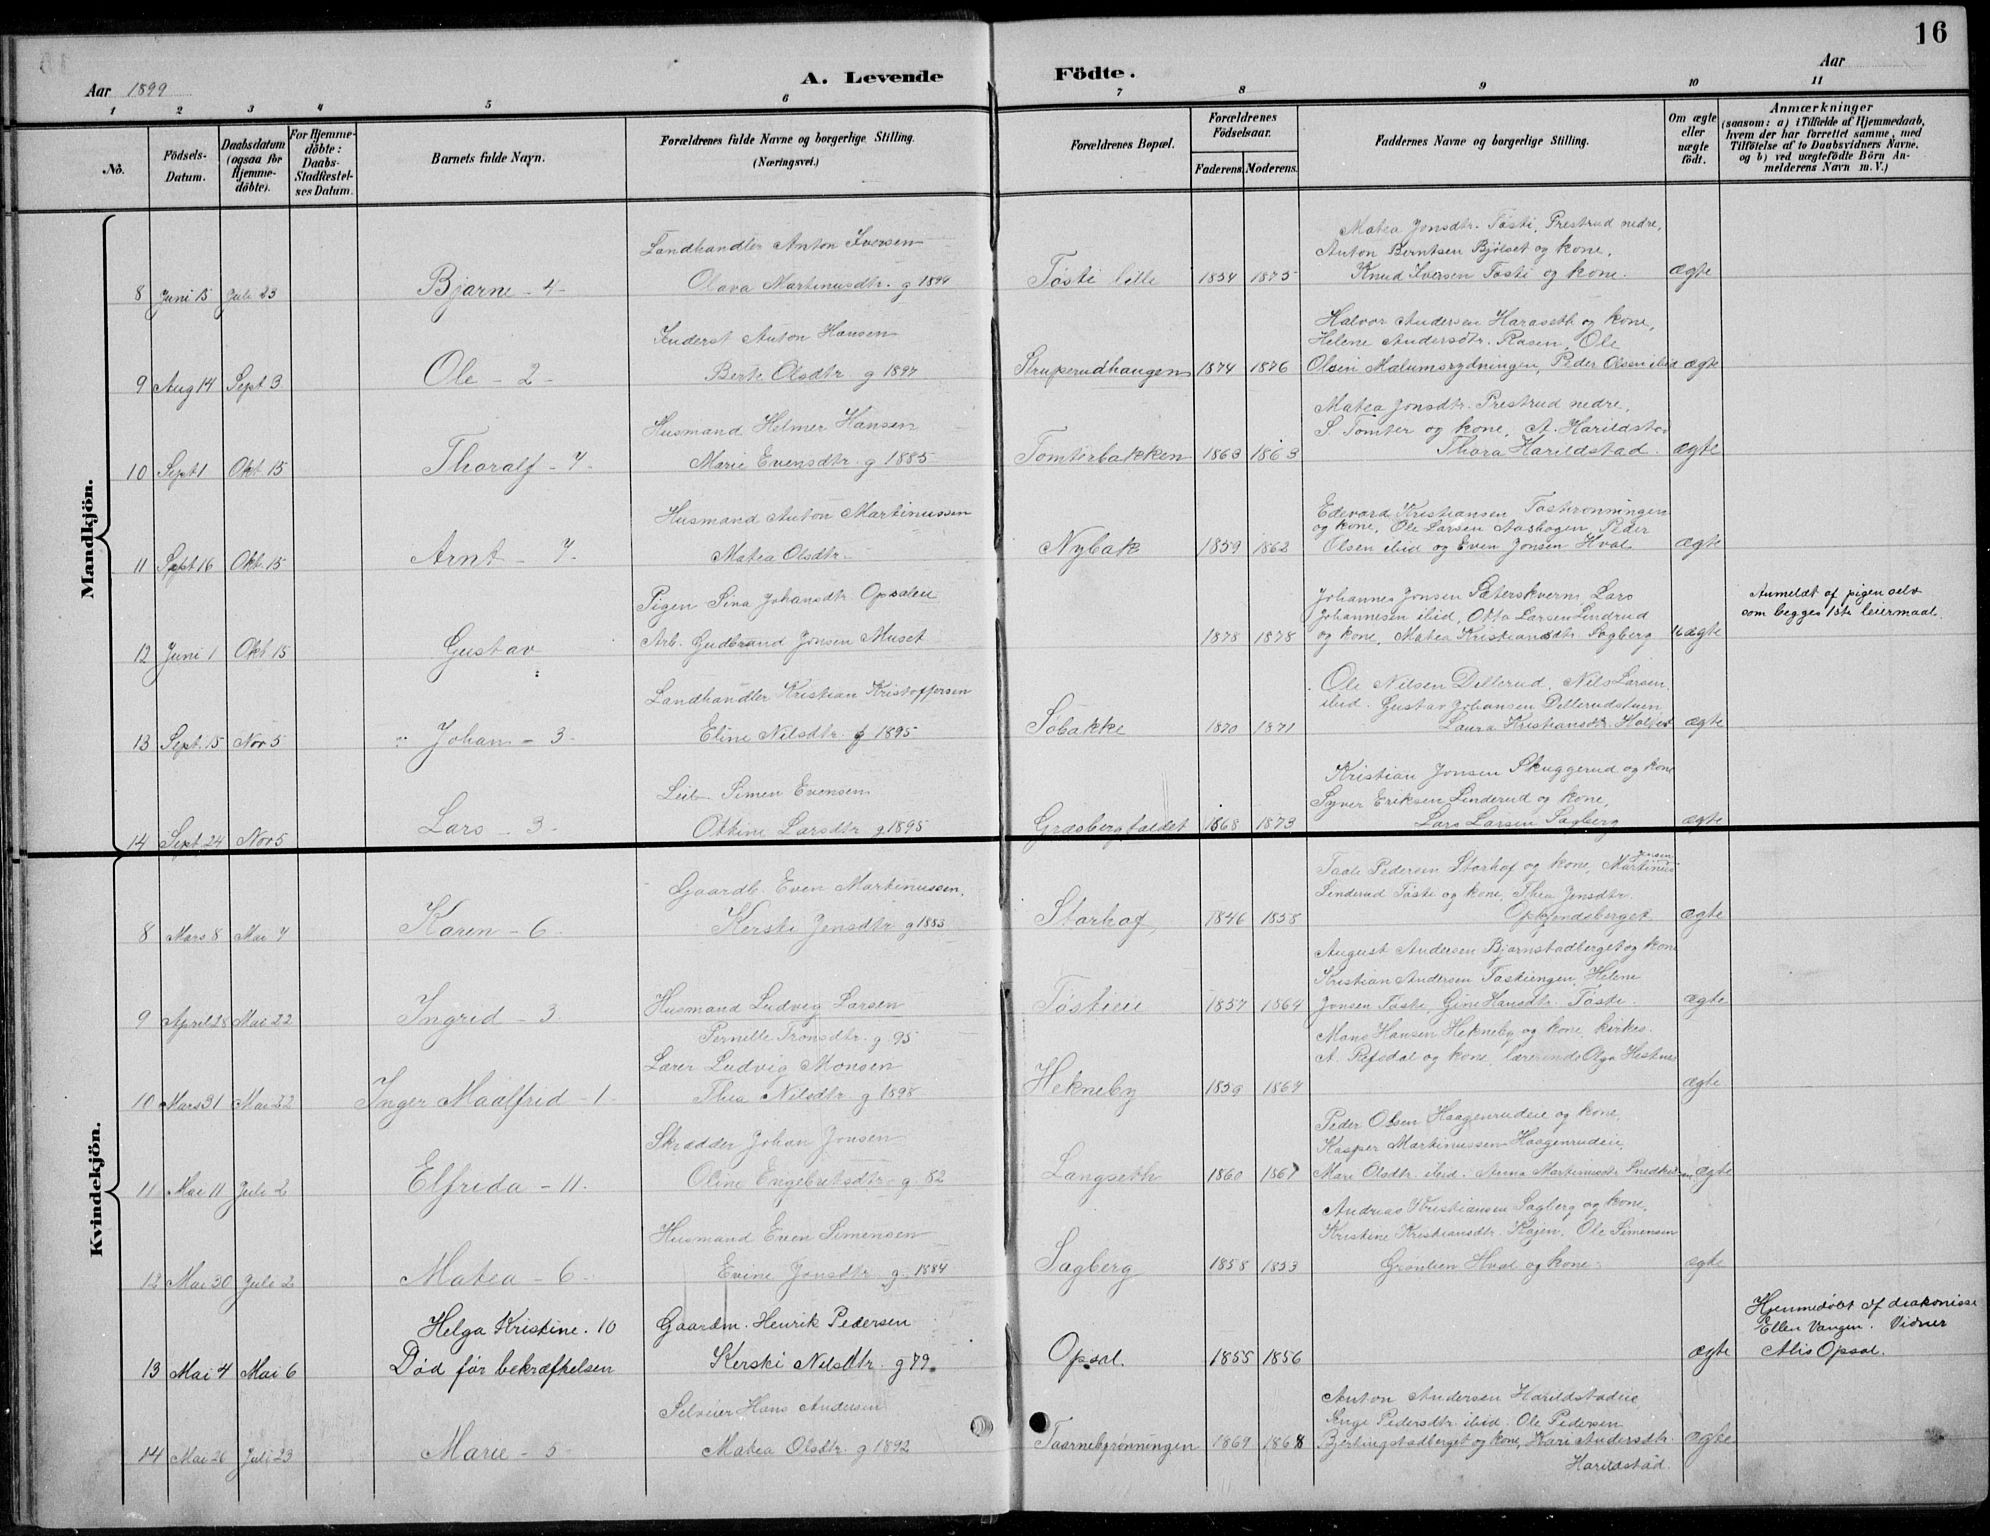 16
Aar 1899
A. Levende Födte.
Aar
1 2 3 4 5 6 7 8 9 10 11
No.
Födsels-Datum.
Daabsdatum (ogsaa for Hjemme-döbte).
For Hjemme-döbte: Daabs-Stadfæstelses Datum.
Barnets fulde Navn.
Forældrenes fulde Navne og borgerlige Stilling. (Næringsvei.)
Forældrenes Bopæl.
Forældrenes Födselsaar.
Faderens. Moderens.
Faddernes Navne og borgerlige Stilling.
Om ægte eller uægte födt.
Anmærkninger
(saasom: a) i Tilfælde af Hjemmedaab,
hvem der har forrettet samme, med
Tilföielse af to Daabsvidners Navne.
og b) ved uægtefödte Börn An-
melderens Navn m. V.)
Mandkjön.
Landhandler Anton Iversen
Matea Jonsdtr. Tøsti, Prestrud nedre,
Anton Berntsen Bjølset og kone,
8 Juni 15 Juli 23 Bjarne - 4 - Olava Martinusdtr. g 1899 Tøsti lille 1854 1875 Knud Iversen Tøsti og kone. ægte
Inderst Anton Hansen
Halvor Andersen Haraseth og kone,
Helene Andersdtr. Rasen, Ole
9 Aug 14 Sept 3 Ole - 2 - Berte Olsdtr g 1897 Struperudhaugen 1874 1876 Olsen Malumsrydningen, Peder Olsen ibid ægte
Husmand Helmer Hansen
Matea Jonsdtr. Prestrud nedre,
S. Tomter og kone, A. Harildstad
10 Sept 1 Okt 15 Thoralf - 7 - Marie Evensdtr. g 1885 Tomterbakken 1863 1863 Thora Harildstad. ægte
Husmand Anton Martinussen
Edevard Kristiansen Tøstirønningen
og kone, Ole Larsen Aashagen, Peder
11 Sept 16 Okt. 15 Arnt - 7. Matea Olsdtr. Nybak 1859 1862 Olsen ibid og Even Jonsen Hval ægte
Pigen Sina Johansdtr. Opsalen
Johannes Jonsen Sæterskvern, Lars
Anmeldt af pigen selv
Johannesen ibid, Otto Larsen Linderud
som begges 1ste leiermaal.
12 Juni 1 Okt 15 Gustav Arb. Gudbrand Jonsen Muset 1878 1878 og kone, Matea Kristiansdtr. Sagberg uægte
Landhandler Kristian Kristoffersen
Ole Nilsen Dellerud, Nils Larsen
ibid. Gustav Johansen Dellerudstuen,
13 Sept. 15 Nov 5 Johan - 3 Eline Nilsdtr. g 1895 Søbakke 1870 1871 Laura Kristiansdtr. ægte
Leil. Simen Evensen
Kristian Jonsen Skuggerud og kone
Syver Eriksen Linderud og kone,
14 Sept. 24 Nov 5 Lars - 3 - Ottine Larsdtr g 1895 Græsbergfaldet 1868 1873 Lars Larsen Sagberg ægte
Kvindekjön.
Gaardb. Even Martinussen,
Taale Pedersen Storhof og kone, Martinus Jensen
Linderud Tøsti og kone, Thea Jensdtr.
8 Mars 8 Mai 7 Karen - 6 Kersti Jensdtr g 1883 Storhof 1846 1858 ægte
August Andersen Bjørnstadberget og kone
Kristian Andersen Tøstiengen, Helene
9 April 28 Mai 22 Ingrid - 3. Husmand Ludvig Larsen Tøstieie 1857 1864 Jonsen Tøsti, Gine Hansdtr. Tøsti. ægte
Pernille Tronsdtr. g. 95
Mons Hansen Hekneby og kone, kirkes.
Lærer Ludvig Monsen
A. Refsdal og kone, lærerinde Olga Hestnes
10 Mars 31 Mai 22 Inger Maalfrid - 1. Thea Nilsdtr g 1898 Hekneby 1859 1864 ægte
Skrædder Johan Jonsen
Peder Olsen Haagenrudeie og kone,
Kasper Martinussen Haagenrudeie,
11 Mai 11 Juli 2 Elfrida - 11. Oline Engebretsdtr g. 82 Langseth 1860 1867 Mari Olsdtr. ibid. Anna Martinusdtr. ægte
Husmand Even Simensen
Andreas Kristiansen Sagberg og kone,
Kristine Kristiansdtr. Kojen, Ole Simensen
12 Mai 30 Juli 2 Matea - 6 - Evine Jonsdtr g. 1884 Sagberg 1858 1853 Grønlien Hval og kone. ægte
Helga Kristine. 10 Gaardm. Henrik Pedersen
Hjemmedøbt af diakonisse
Ellen Vangen. Vidner
13 Mai 4 Mai 6 Død før bekræftelsen Kersti Nilsdtr. g 79. Opsal. 1855 1856 ægte Alis Opsal.
Selveier Hans Andersen
Anton Andersen Harildstadeie
Inge Pedersdtr. ibid. Ole Pedersen
14 Mai 26 Juli 23 Marie - 5 - Matea Olsdtr. g 1892 Taarnebyrønningen 1869 1868 Bjertingstadberget og kone, Kari Andersdtr. ægte
Harildstad.